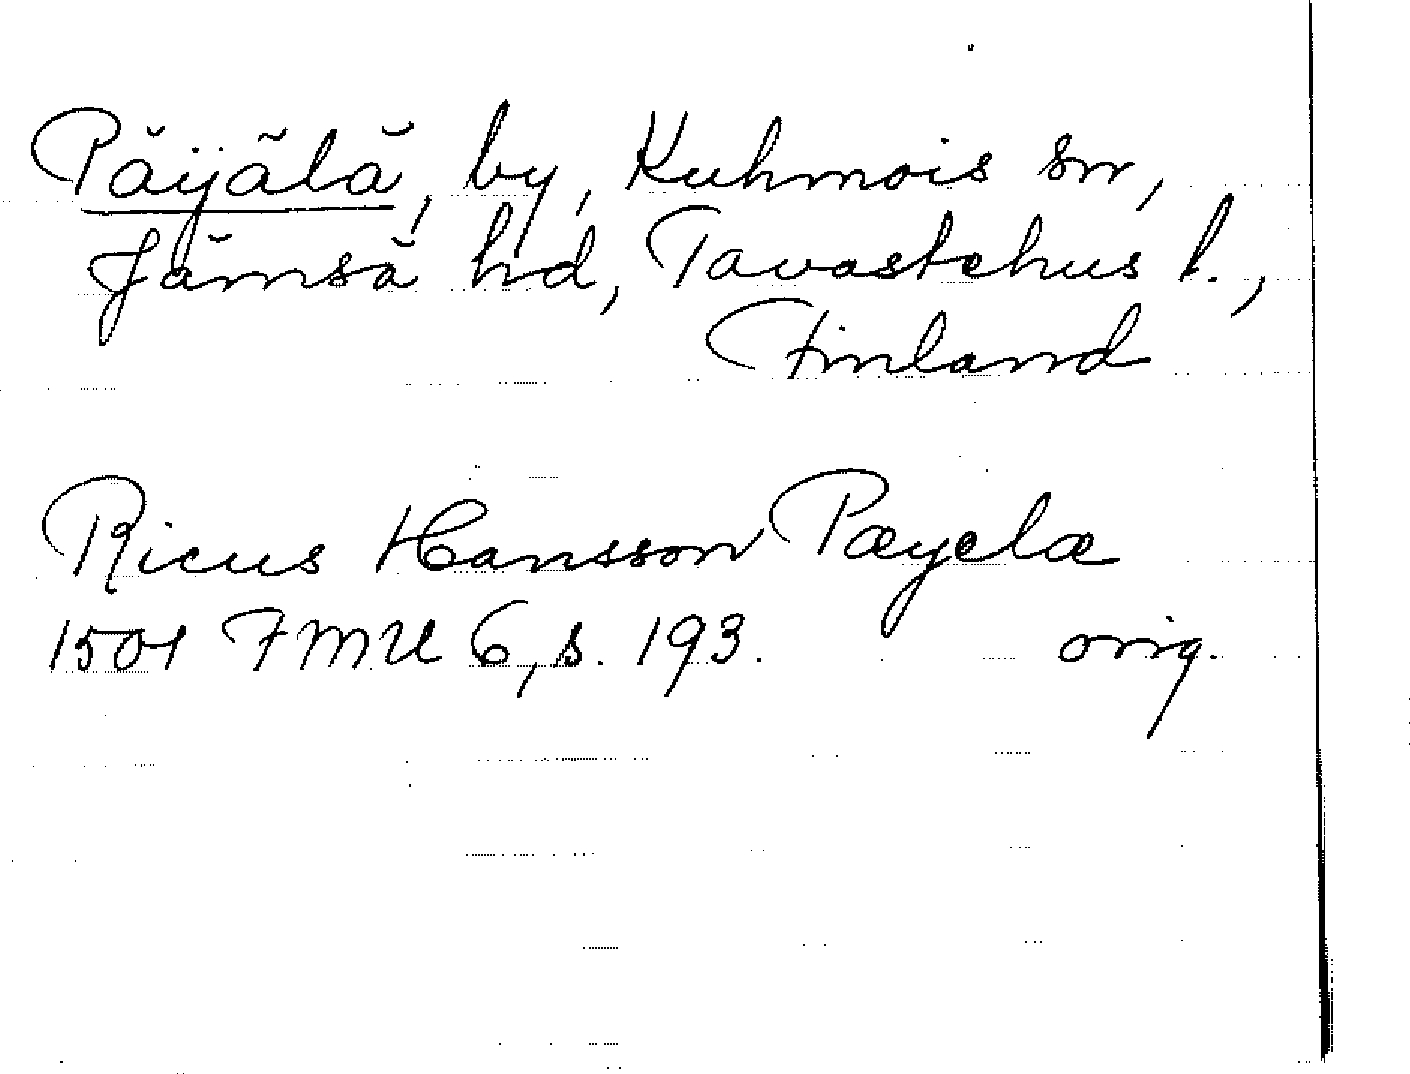 Päijälä, by, Kuhmois sn,
Jämsä hd, Tavastehus l.,
Finland
Ricus Hansson Pæyelæ
1501 FMU 6, s. 193. orig.